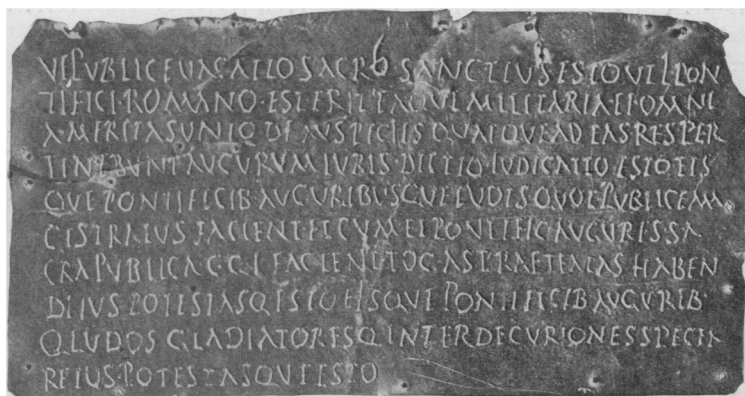 PVBLICE VACATIO SACRO·SANCTIVS ESTO VTI PON
TIFICI·ROMANO·EST ERIT TAQVE MILITARIA·EI·OMNI
A·MERITA SVNTO DE AVSPICIIS QVAEQVE AD EAS RES PER
TINEBVNT AVGVRVM IVRIS·DICTIO IVDICATIO ESTO EIS
QVE PONTIFICIB·AVGVRIBVSQVE LVDIS QVOT PVBLICE MA
GISTRATVS FACIENT ET CVM EI PONTIFIC AVGVRES SA
CRA PVBLICA C·G·I FACIENT TOGAS PRAETEXTAS HABEN
DI IVS POTESTASQ ESTO EISQVE PONTIFICIB AVGVRIB·
Q LVDOS GLADIATORESQ INTER DECVRIONES SPECTA
RE IVS POTESTASQVE ESTO